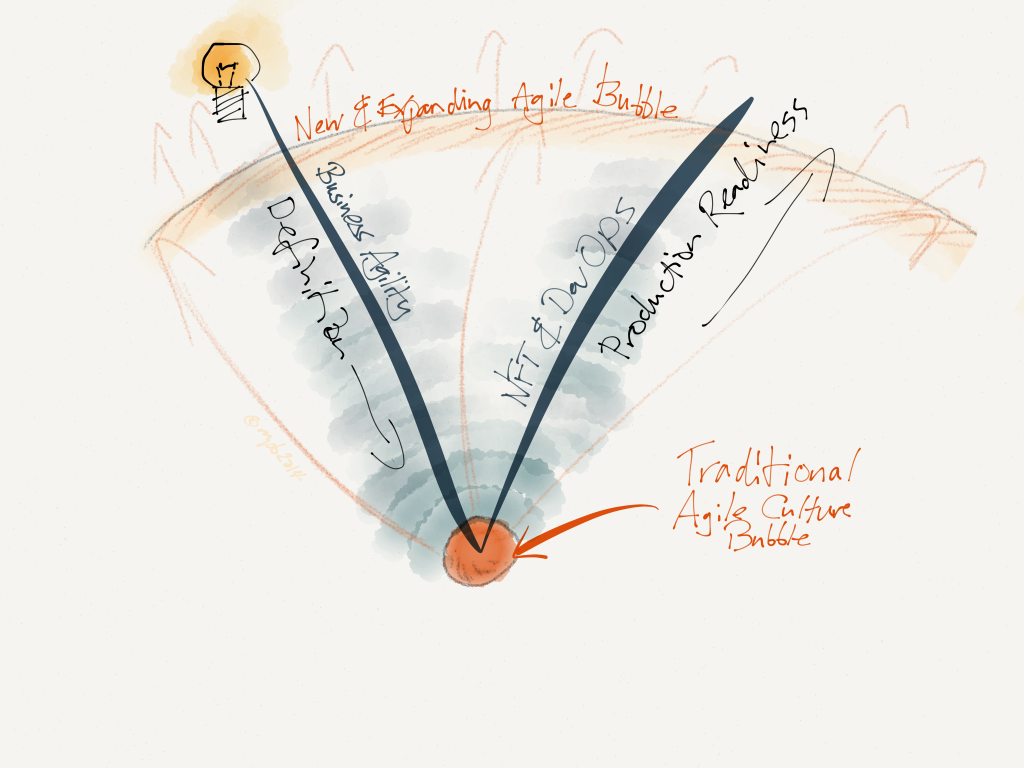 New & Expanding Agile Bubble
Business Agility
Definition
NFT & DevOps
Production Readiness
Traditional
Agile Culture
Bubble